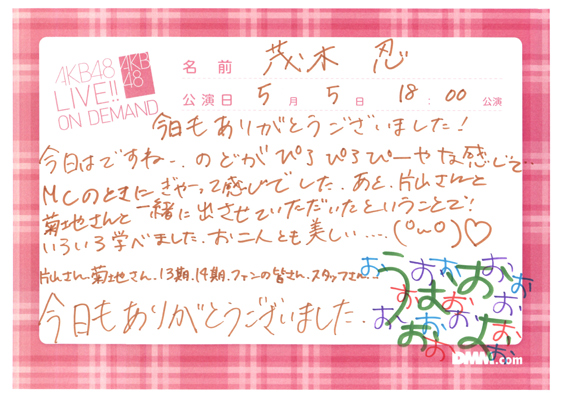 AKB48
LIVE!!
ON DEMAND
AKB
48
名前 茂木 忍
公演日 5月 5日 18:00 公演
今日もありがとうございました!
今日はですねー、のどがぴろぴろぴーやな感じで…
MCのときにぎゃーって感じでした、あと、片山さんと
菊地さんと一緒に出させていただいたということで!
いろいろ学べました、お二人とも美しい....(°ω°)♡
片山さん、菊地さん、13期、14期、ファンの皆さん、スタッフさん、
今日もありがとうございました、
DMM.com